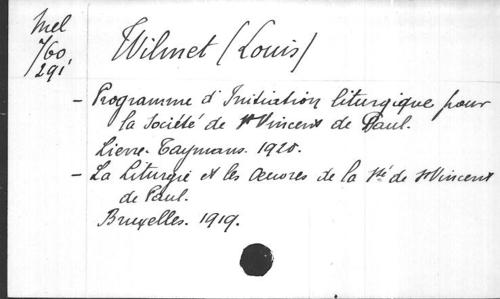 Mel
760,
291,
Wilmet (Louis)
- Programme d'Initiation liturgique pour
la Société de St Vincent de Paul.
Lierre. Taymans. 1920.
- La Liturgie et les Oeuvres de la Sté de St Vincent
de Paul.
Bruxelles. 1919.